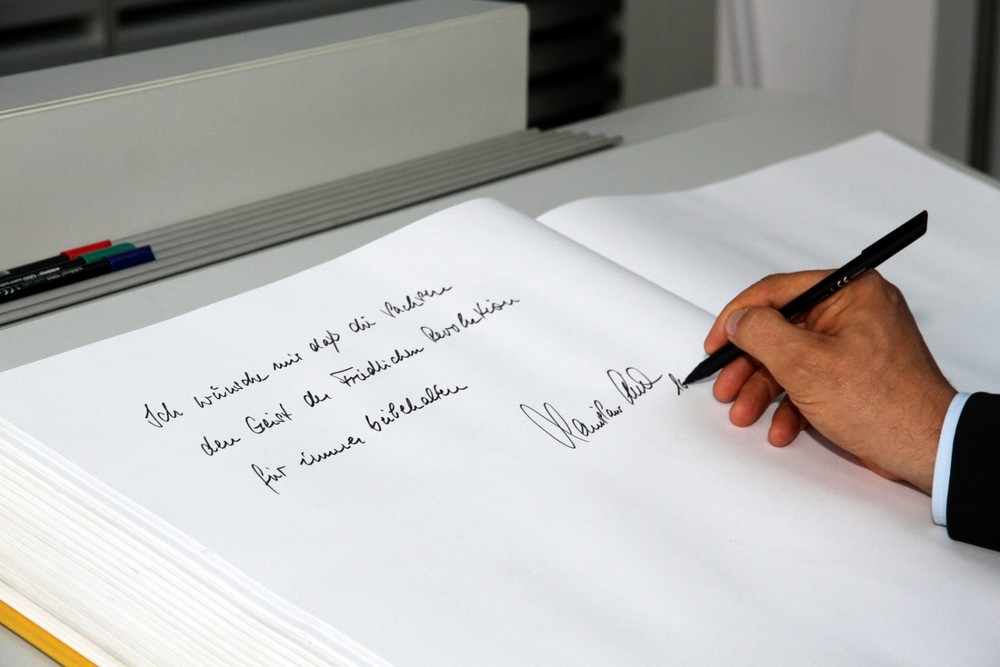 Ich wünsche mir daß die Sachsen
den Geist der Friedlichen Revolution
für immer beibehalten
Stanislaw